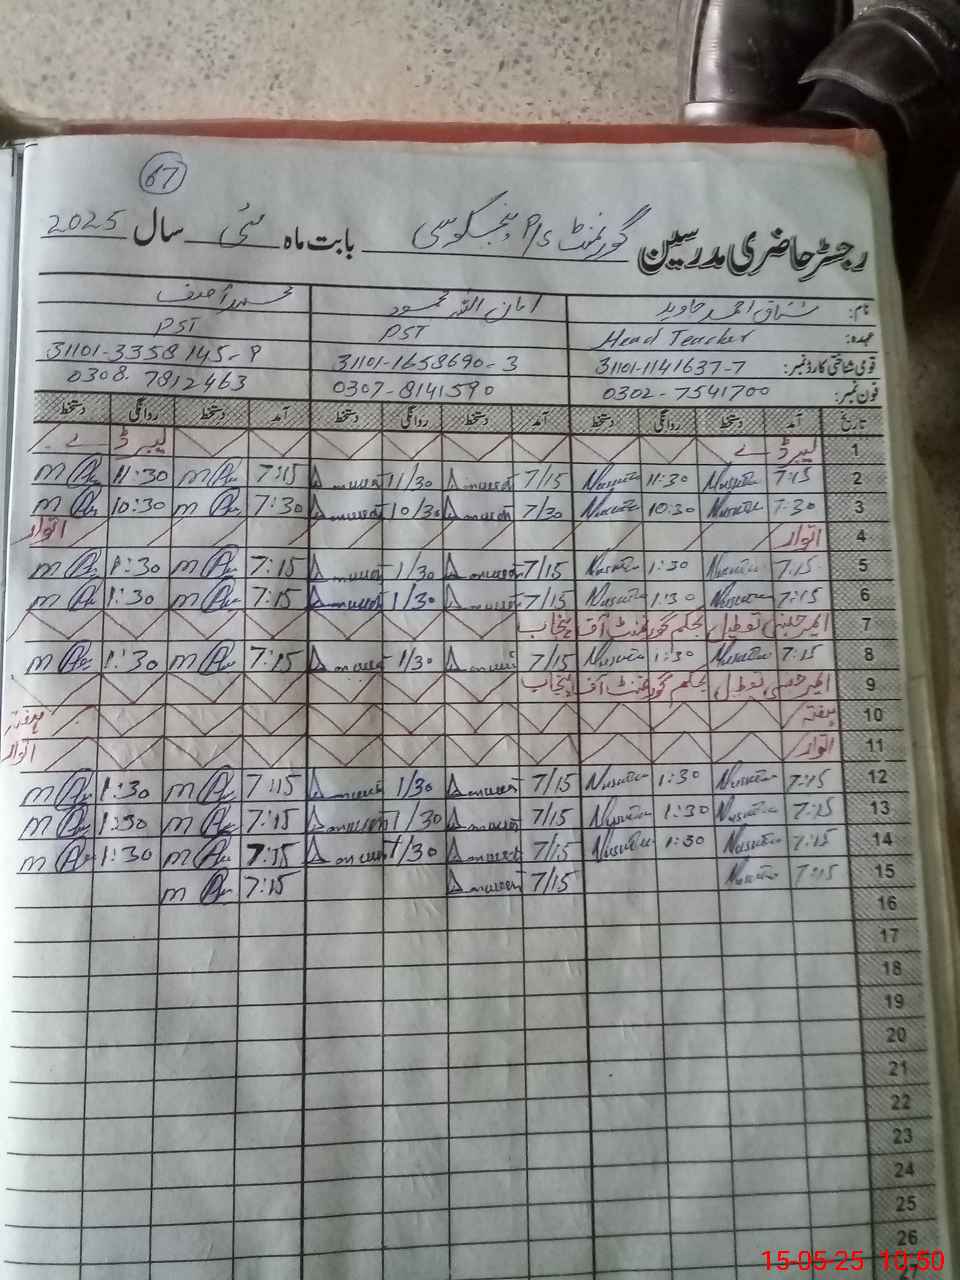 67
رجسٹر حاضری مدرسین گورنمنٹ P/S پنجکوسی بابت ماہ مئی سال 2025
نام: مشتاق احمد جاوید امان اللہ محمود محمد احنف
عہدہ: Head Teacher PST PST
قومی شناختی کارڈ نمبر: 31101-1141637-7 31101-1658690-3 31101-3358145-9
فون نمبر: 0302-7541700 0307-8141590 0308-7812463
تاریخ آمد دستخط روانگی دستخط آمد دستخط روانگی دستخط آمد دستخط روانگی دستخط
1 لیبر ڈے لیبر ڈے
2 7:15 11:30 7/15 11/30 7:15 11:30
3 7:30 10:30 7/30 10/30 7:30 10:30
4 اتوار اتوار
5 7:15 1:30 7/15 1/30 7:15 1:30
6 7:15 1:30 7/15 1/30 7:15 1:30
7 تعطیل بحکم گورنمنٹ آف پنجاب
8 7:15 1:30 7/15 1/30 7:15 1:30
9 تعطیل بحکم گورنمنٹ آف پنجاب
10 ہفتہ ہفتہ
11 اتوار اتوار
12 7:15 1:30 7/15 1/30 7:15 1:30
13 7:15 1:30 7/15 1/30 7:15 1:30
14 7:15 1:30 7/15 1/30 7:15 1:30
15 7:15 7/15 7:15
16
17
18
19
20
21
22
23
24
25
26
15-05-25 10,50